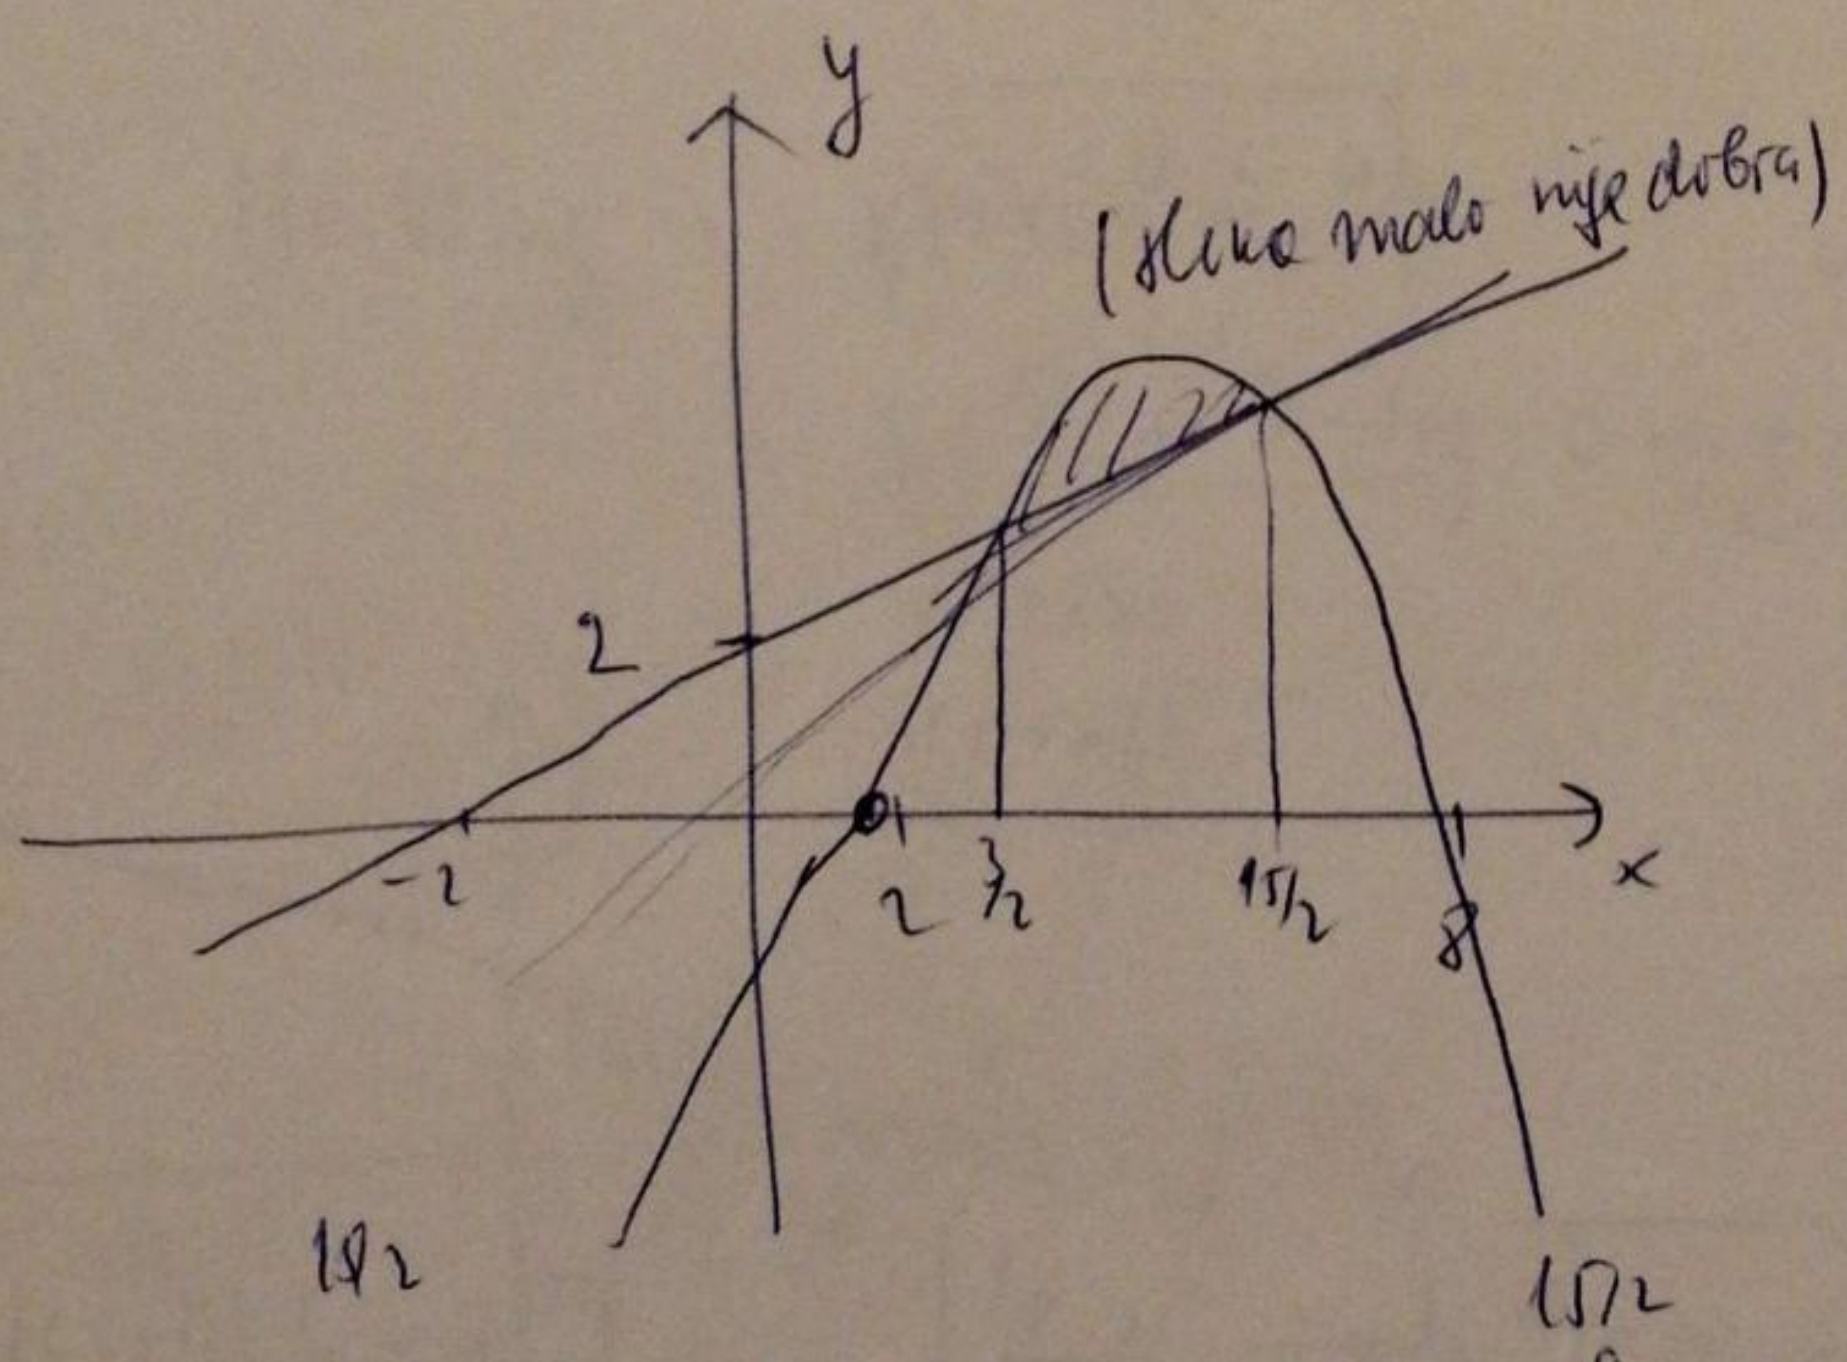 y
(slika malo nije dobra)
2
-2 2 3/2 15/2 8 x
15/2